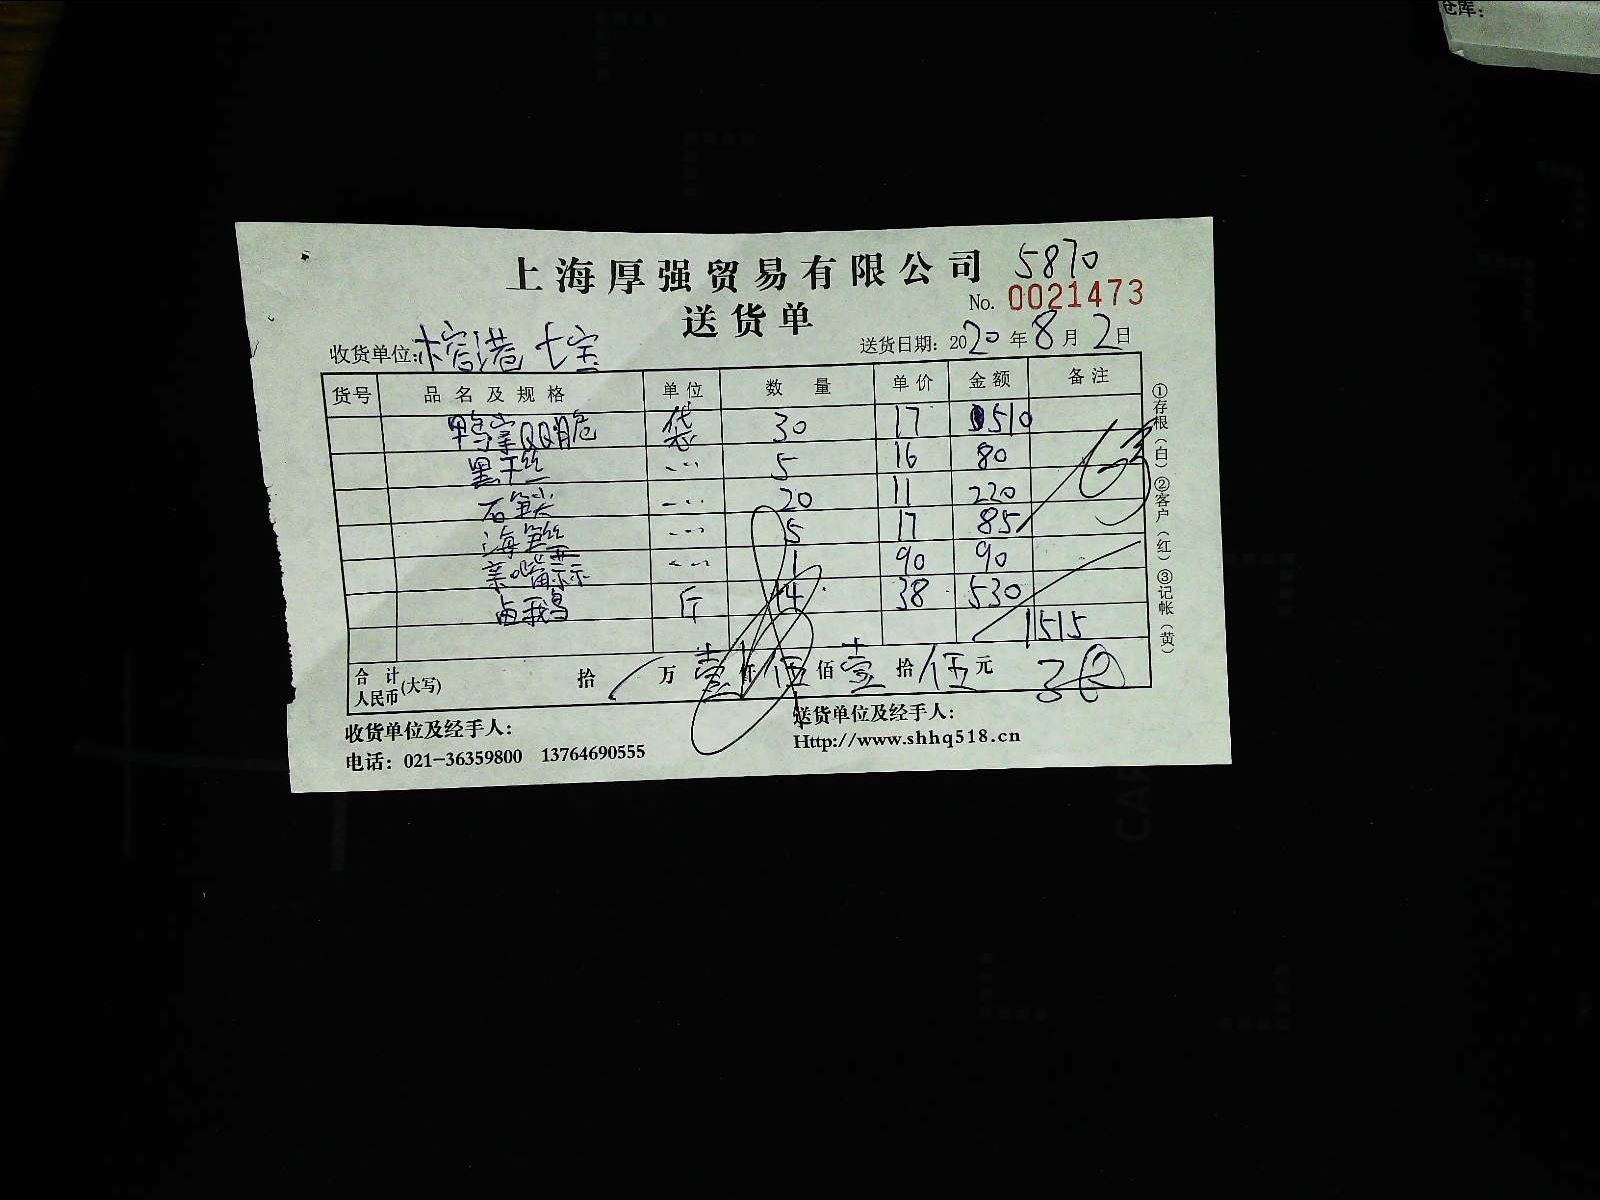 仓库：
上海厚强贸易有限公司 5870
No. 0021473
送货单
收货单位: 榕港 七宝 送货日期: 2020年8月2日
货号 品名及规格 单位 数量 单价 金额 备注
鸭掌QQ脆 袋 30 17 510
黑千丝 〃 5 16 80
石笋尖 〃 20 11 220
海笋丝 〃 5 17 85
亲嘴蒜 〃 1 90 90
卤鹅 斤 14 38 530
1515
合计人民币(大写) 拾 / 万 壹 仟 伍 佰 壹 拾 伍 元
收货单位及经手人: 送货单位及经手人:
电话: 021-36359800 13764690555 Http://www.shhq518.cn
①存根(白)②客户(红)③记帐(黄)